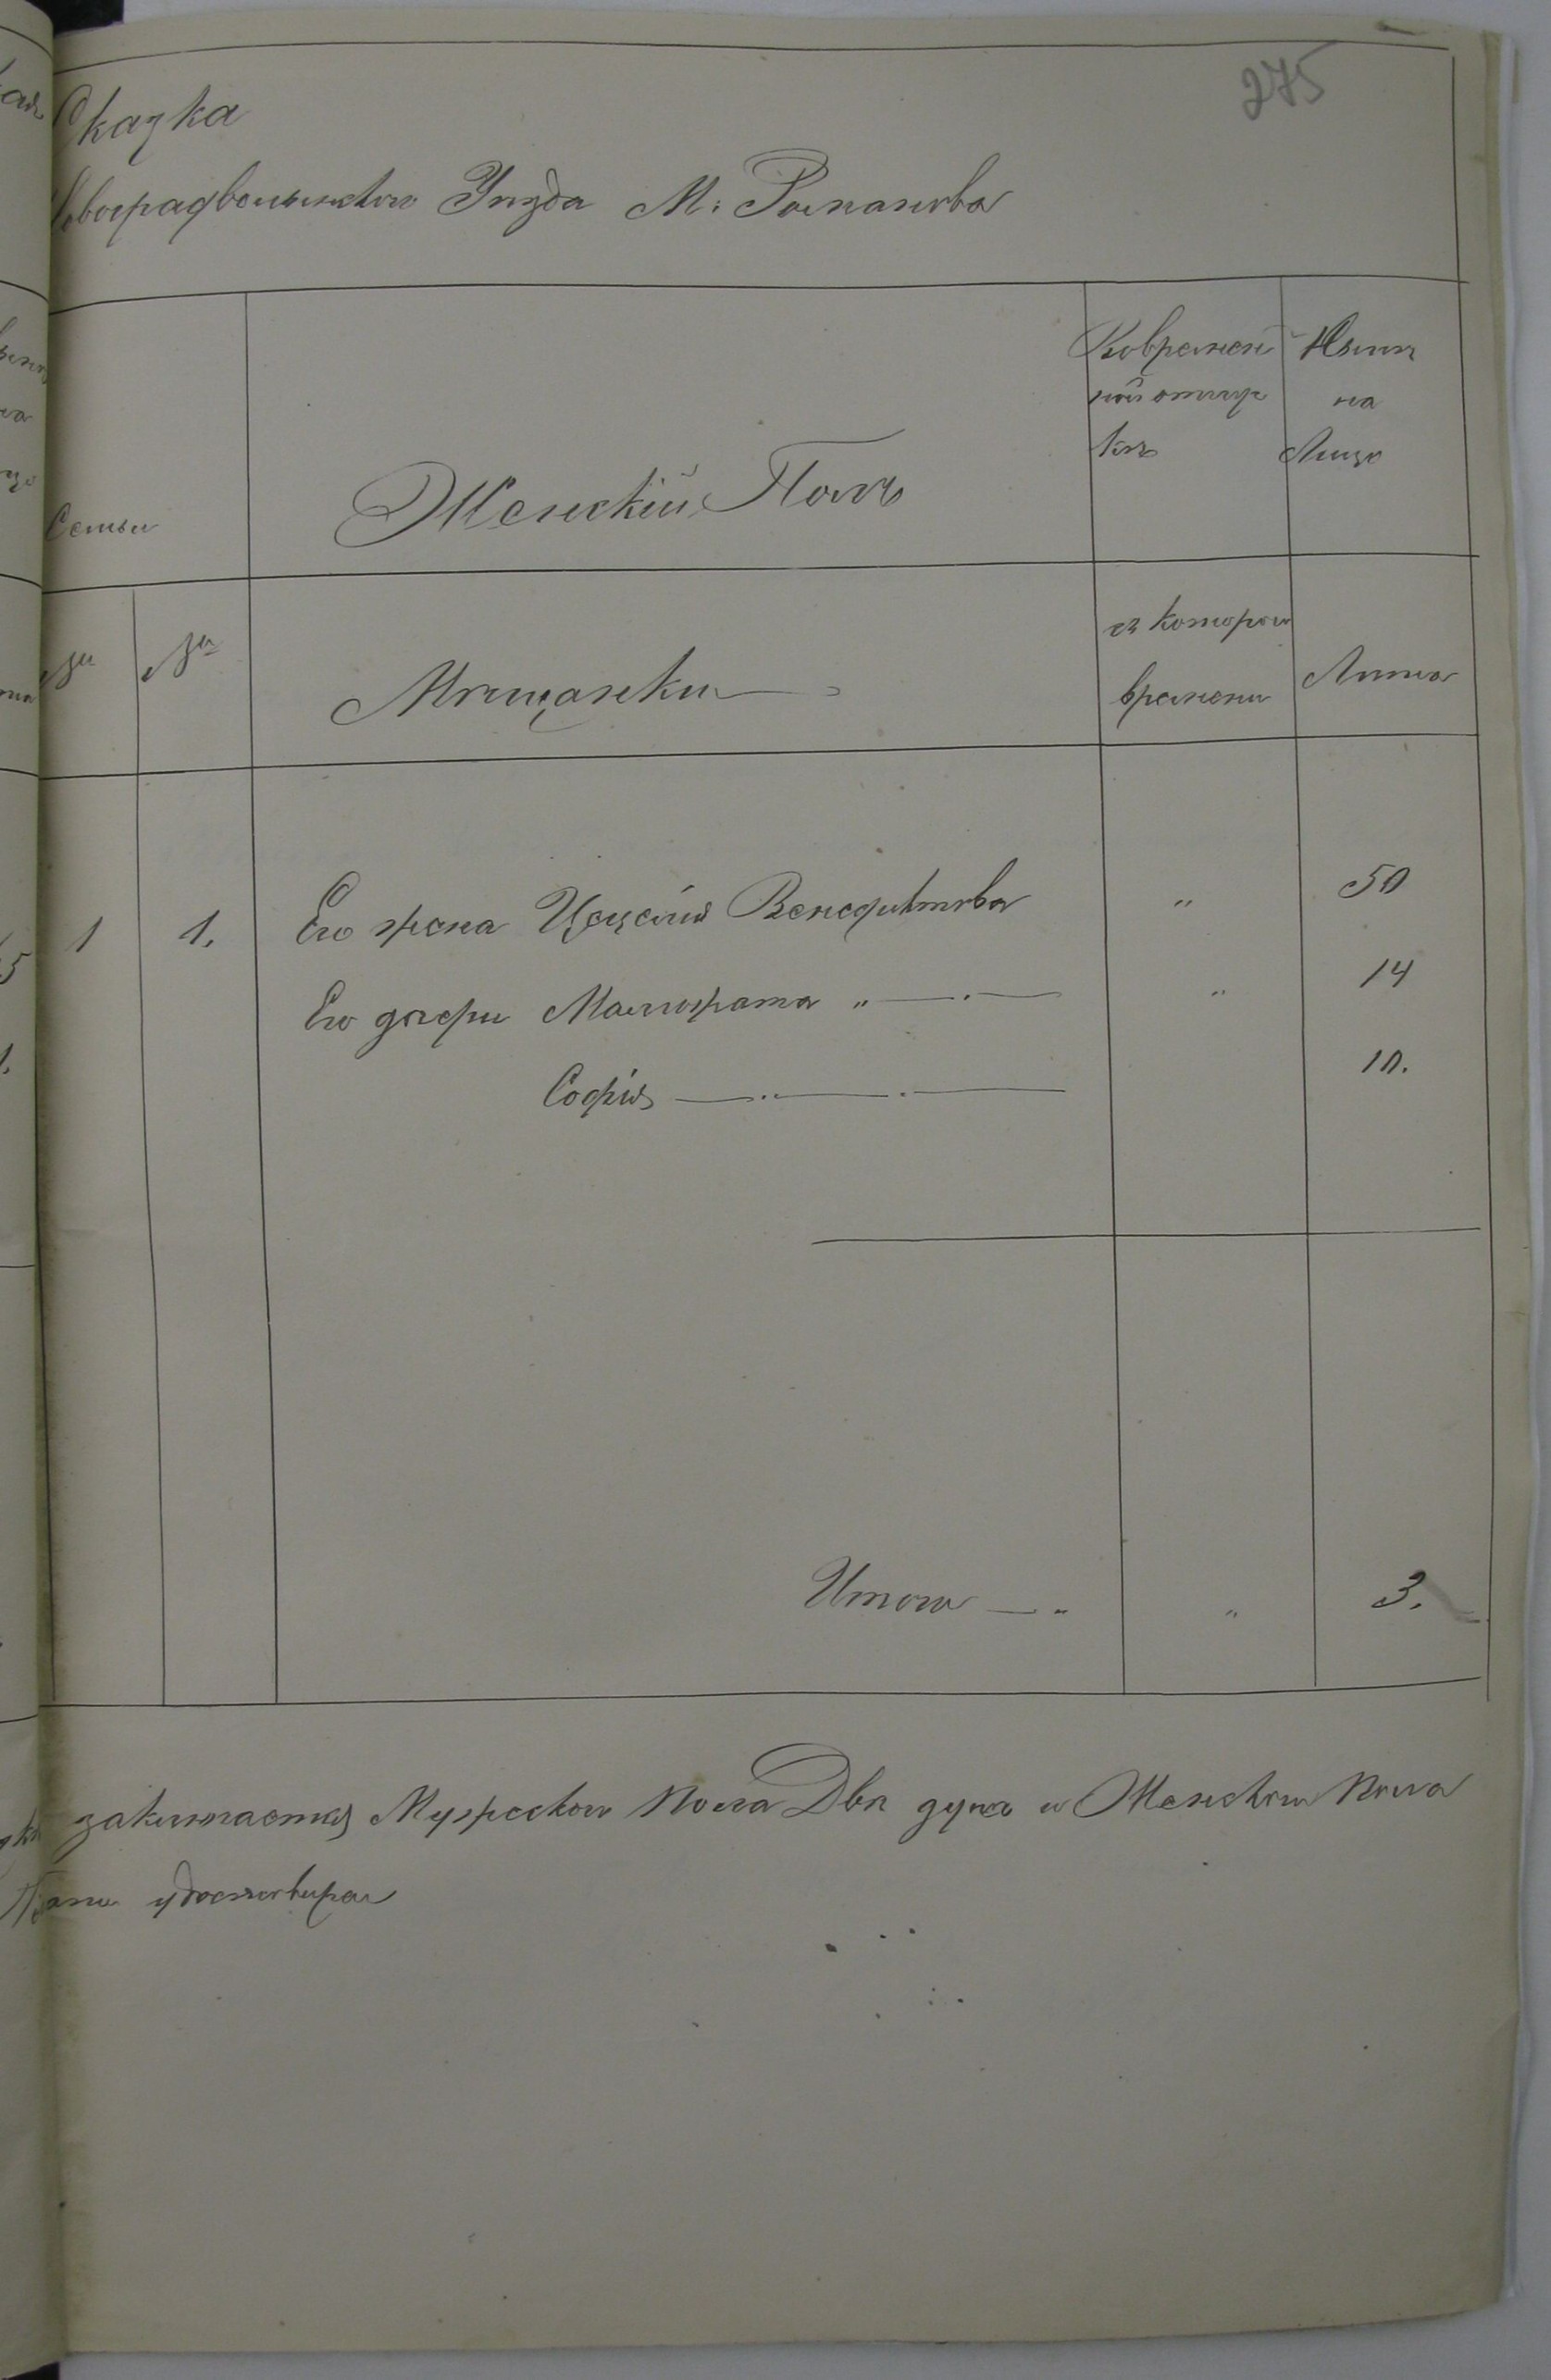 275
Сказка
Новоградволынского Уѣзда М: Романова
Семьи
Женскій Полъ
Вовремен
ной отлуч
кѣ
Нынѣ
на
Лицо
№ №
Мѣщанки
съ котораго
времени
Лѣта
1 1. Его жена Цецелія Венедиктова " 50
Его дочери Малгората " " 14
Софія 10.
Итого " 3.
заключается Мужеского пола Двѣ души и Женского пола
удостовѣряю